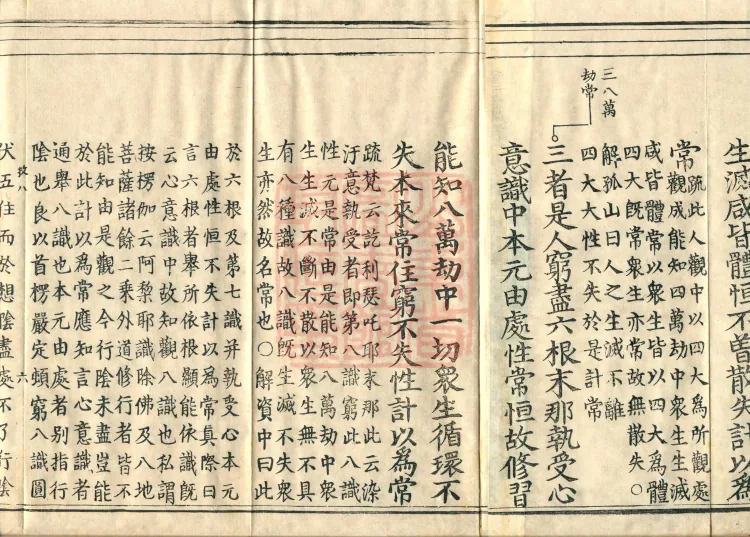 生滅咸皆體恒不曽散失計以爲
常疏此人觀中以四大爲所觀處
觀成能知四萬劫中衆生生滅
咸皆體常以衆生皆以四大爲體
四大旣常衆生亦常故無散失○
解孤山曰人之生滅不離
四大大性不失於是計常
三八萬
劫常
三者是人窮盡六根末那執受心
意識中本元由處性常恒故修習
能知八萬劫中一切衆生循環不
失本來常住窮不失性計以爲常
疏梵云訖利瑟吒耶末那此云染
汙意執受者即第八識窮此八識
性元是常由是能知八萬劫中衆
生生滅不斷不散以衆生無不具
有八種識故八識旣生滅不失衆
生亦然故名常也○解資中曰此
於六根及第七識并執受心本元
由處性恒不失計以爲常真際曰
言六根者舉所依根顯能依識旣
云心意識中故知觀八識也私謂
按楞伽云阿棃耶識除佛及八地
菩薩諸餘二乗外道修行者皆不
能知由是觀之今行陰未盡豈能
於此計以爲常應知言心意識者
通舉八識也本元由處者别指行
陰也良以首楞嚴定頓窮八識圓
伏五住而於想陰盡處不了行陰